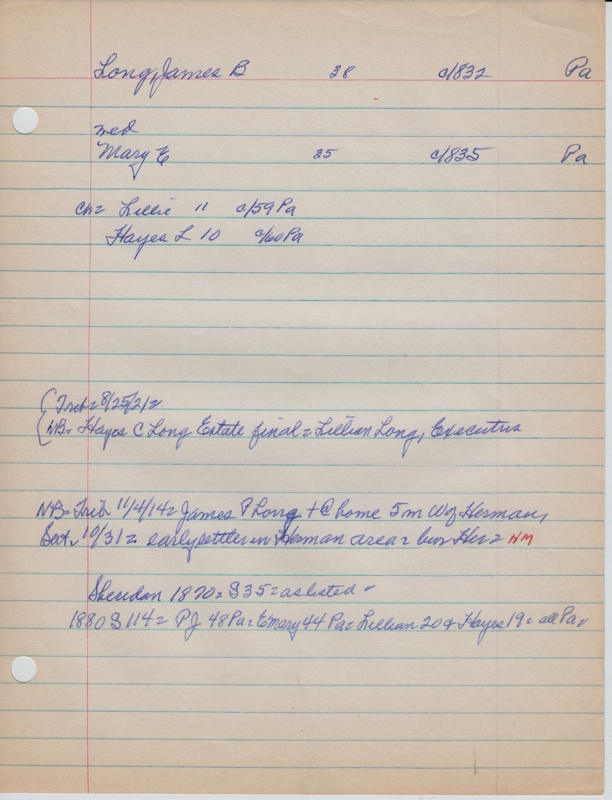 Long, James B 38 c/1832 Pa
med
Mary E 35 c/1835 Pa
ch= Lillie 11 c/59 Pa
Hayes L 10 c/60 Pa
(Trib= 8/25/21=
(NB= Hayes C Long Estate final= Lillian Long, Executrix
NB= Trib 11/4/14= James P Long + @ home 5 m W of Herman,
Sat 10/31= early settler in Herman area= bur Her= NM
Sheridan 1870= S35= as listed=
1880 S 114= P J 48 Pa= E Mary 44 Pa= Lillian 20 & Hayes 19= all Pa=